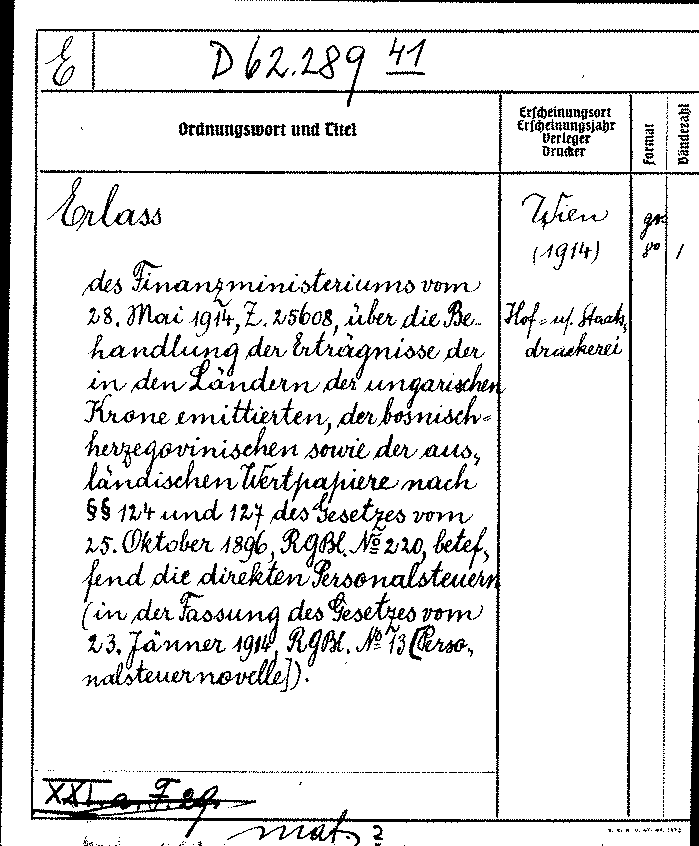 E
D 62.289 41
Ordnungswort und Titel
Erscheinungsort
Erscheinungsjahr
Verleger
Drucker
Format
Bändezahl
Erlass
Wien
(1914)
gr.
8°
1
Hof- u. Staats-
druckerei
des Finanzministeriums vom
28. Mai 1914, Z. 25608, über die Be-
handlung der Erträgnisse der
in den Ländern der ungarischen
Krone emittierten, der bosnisch-
herzegovinischen sowie der aus-
ländischen Wertpapiere nach
§§ 124 und 127 des Gesetzes vom
25. Oktober 1896, RGBl. No 220, betef-
fend die direkten Personalsteuern
(in der Fassung des Gesetzes vom
23. Jänner 1914, RGBl. No 13 [Perso-
nalsteuernovelle]).
XXI. a. F. 29.